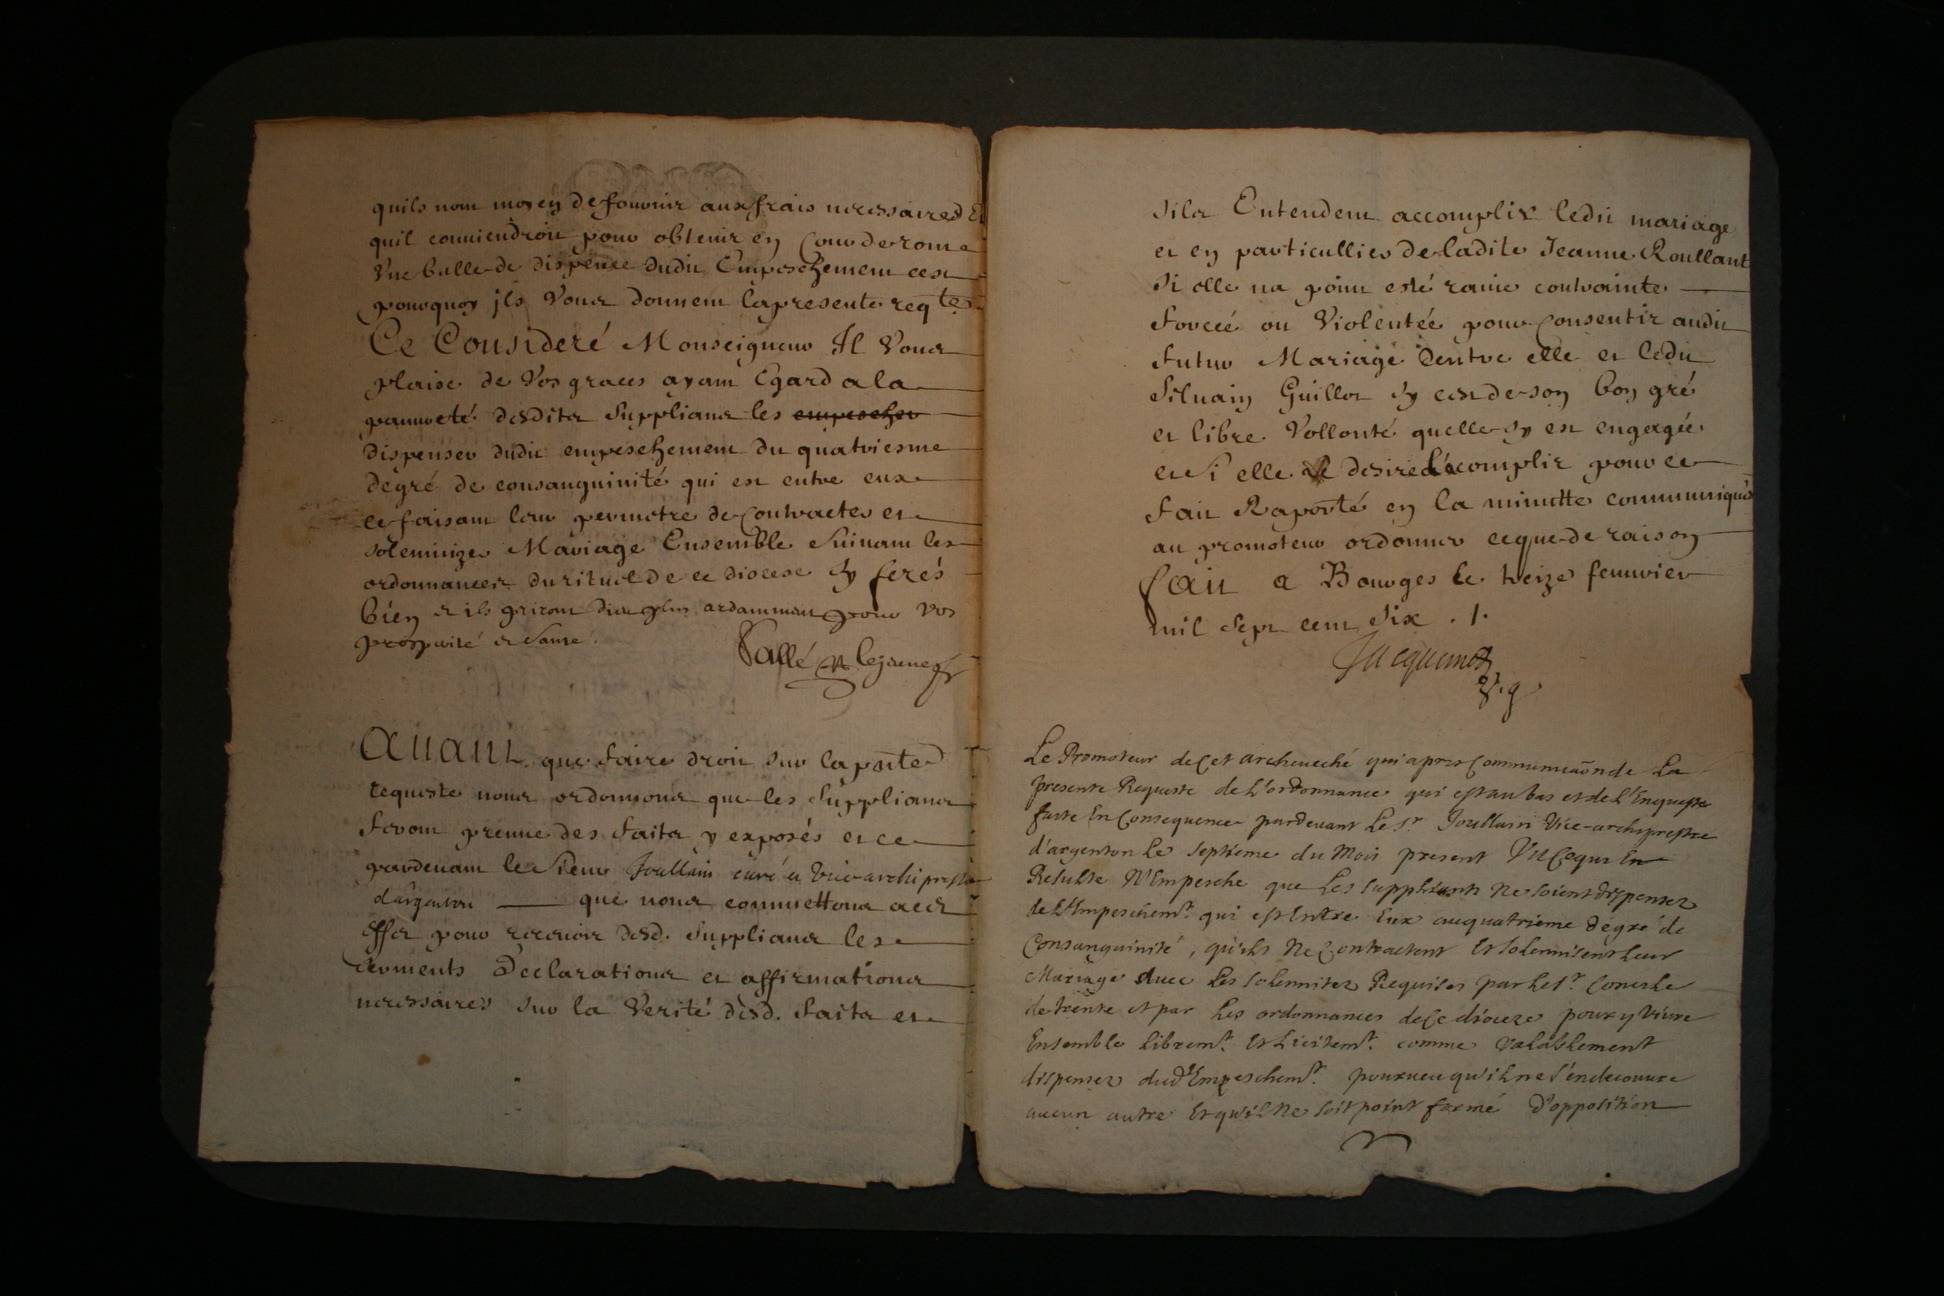 quils nont moyen de fournir aux frais necessaires Et
quil conviendroit pour obtenir en Cour de rome
Une bulle de dispence dudit Empeschement cest
pourquoy ils Vous donnent la presente reqte.
Ce Consideré Monseigneur Il Vous
plaise de Vos graces ayant Egard a la
pauvreté desdits Suppliants les empescher
dispenser dudit empeschement du quatriesme
degré de consanguinité qui est entre eux
ce faisant leur permetre de Contracter et
solemnizer Mariage Ensemble Suivant les
ordonnances du rituel de ce diocese Sy ferés
bien & ils priront dieu plus ardamment pour vos
prosperité & Sante.
Sallé le jeune
Avant que faire droit sur la pnte
requeste nous ordonnons que les Suppliants
feront preuve des faits y exposés et ce
pardevant le Sieur Joullain curé et Vice-archiprestre
d'argenton que nous commettons a cet
effet pour recevoir desd. Suppliants les
serments Declarations et affirmations
necessaires sur la Verité desd. faits et
Sils Entendent accomplir ledit mariage
et en particullier de ladite Jeanne Roullant
Si elle na point esté ravie contrainte
forcée ou Violentée pour Consentir audit
futur Mariage Dentre elle et ledit
Silvain Guillot Sy cest de son bon gré
et libre Vollonté quelle sy est engagée
et Si elle desire l'acomplir pour ce
fait Raporté en la minutte communiquée
au promoteur ordonner ce que de raison
fait a Bourges le treize feuvrier
mil Sept cent Six . /.
Jacquemet
v. g
Le Promoteur de Cet archeveché qui apres Communicaõn de La
presente Requeste de L'ordonnance qui est au bas et de l'Enqueste
faite En Consequence pardevant Le Sr Joullain Vice-archiprestre
d'argenton Le Septieme du Mois present Vu Ce qui En
Resulte N'Empesche que Les suppliants Ne soient dispensez
de L'Empeschemt. qui est Entre Eux au quatrieme degré de
Consanguinité, qu'ils Ne Contractent Et solemnisent Leur
Mariage Avec Les solemnitez Requises par Le St. Concile
de trente et par Les ordonnances de Ce diocese pour y vivre
Ensemble Libremt. Et Licitemt. comme valablement
dispensez dud. Empeschemt. pourveu qu'il ne s'en decouvre
aucun autre Et qu'il Ne soit point formé d'opposition